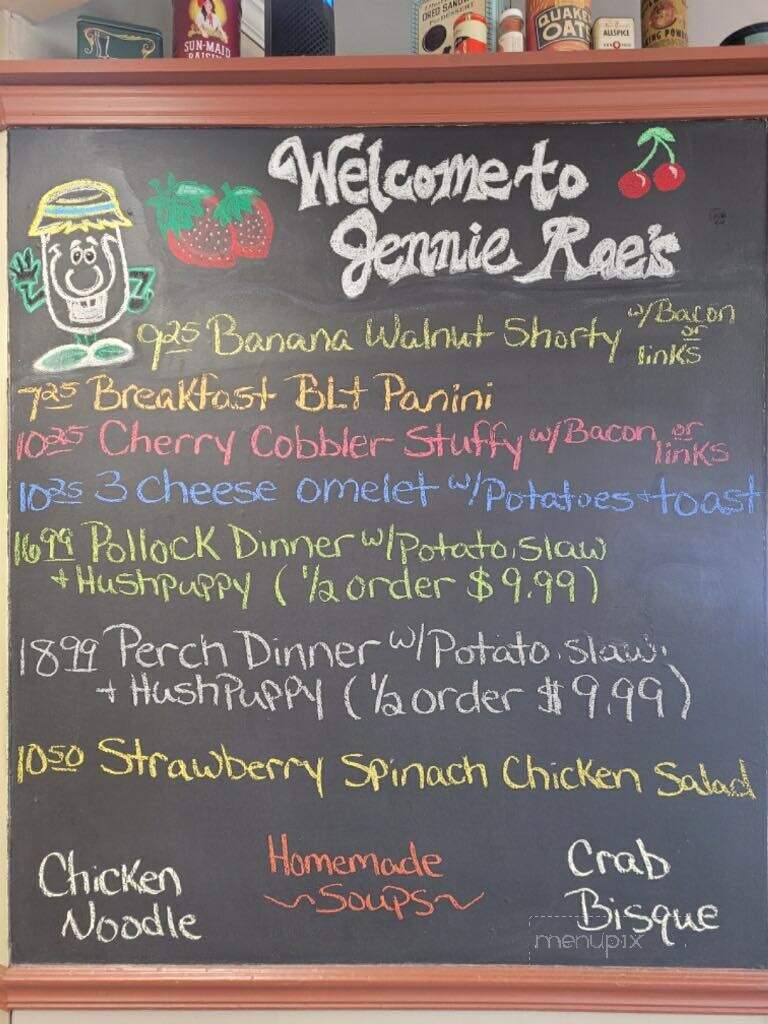 SUN-MAID
RAISINS
OREO SANDWICH
QUAKER
OATS
ALLSPICE
Welcome to
Jennie Rae's
9.25 Banana Walnut Shorty w/Bacon
or
links
7.25 Breakfast BLt Panini
10.25 Cherry Cobbler Stuffy w/Bacon or
links
10.25 3 Cheese omelet w/Potatoes + toast
16.99 Pollock Dinner w/Potato, Slaw
+ HushPuppy (1/2 order $9.99)
18.99 Perch Dinner w/Potato, Slaw,
+ HushPuppy (1/2 order $9.99)
10.50 Strawberry Spinach Chicken Salad
Chicken
Noodle
Homemade
~Soups~
Crab
Bisque
menupix